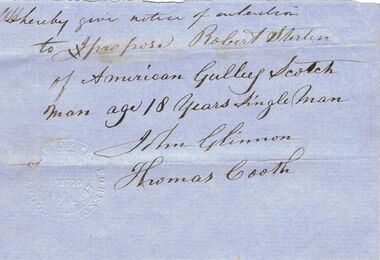 I hereby give notice of intention
to I propose Robert
of American Gulley Scotch
man age 18 Years Single Man
John Glinnon
Thomas Cooth